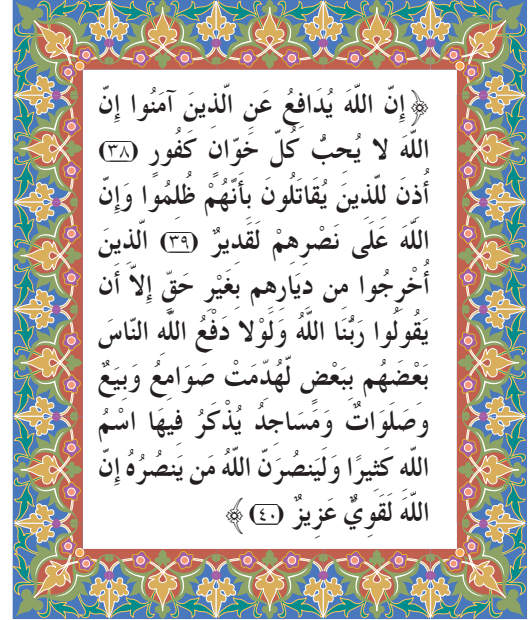 ﴿إِنّ اللّهَ يُدَافِعُ عَنِ الّذِينَ آمَنُوا إِنّ
اللّهَ لا يُحِبُّ كُلّ خَوّانٍ كَفُورٍ (٣٨)
أُذِنَ لِلّذِينَ يُقَاتَلُونَ بِأَنّهُمْ ظُلِمُوا وَإِنّ
اللّهَ عَلَى نَصْرِهِمْ لَقَدِيرٌ (٣٩) الّذِينَ
أُخْرِجُوا مِن دِيَارِهِم بِغَيْرِ حَقّ إِلاّ أَن
يَقُولُوا رَبُّنَا اللّهُ وَلَوْلا دَفْعُ اللّهِ النّاسَ
بَعْضَهُم بِبَعْضٍ لّهُدّمَتْ صَوَامِعُ وَبِيَعٌ
وصَلَوَاتٌ وَمَسَاجِدُ يُذْكَرُ فِيهَا اسْمُ
اللّهِ كَثِيرًا وَلَيَنصُرَنّ اللّهُ مَن يَنصُرُهُ إِنّ
اللّهَ لَقَوِيٌّ عَزِيزٌ (٤٠)﴾